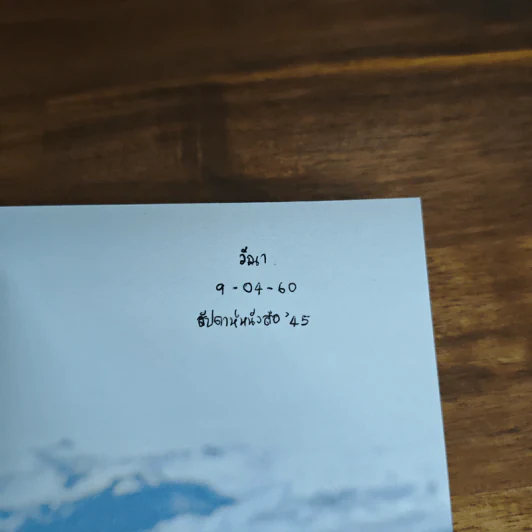 วีณา
9-04-60
สัปดาห์หนังสือ '45